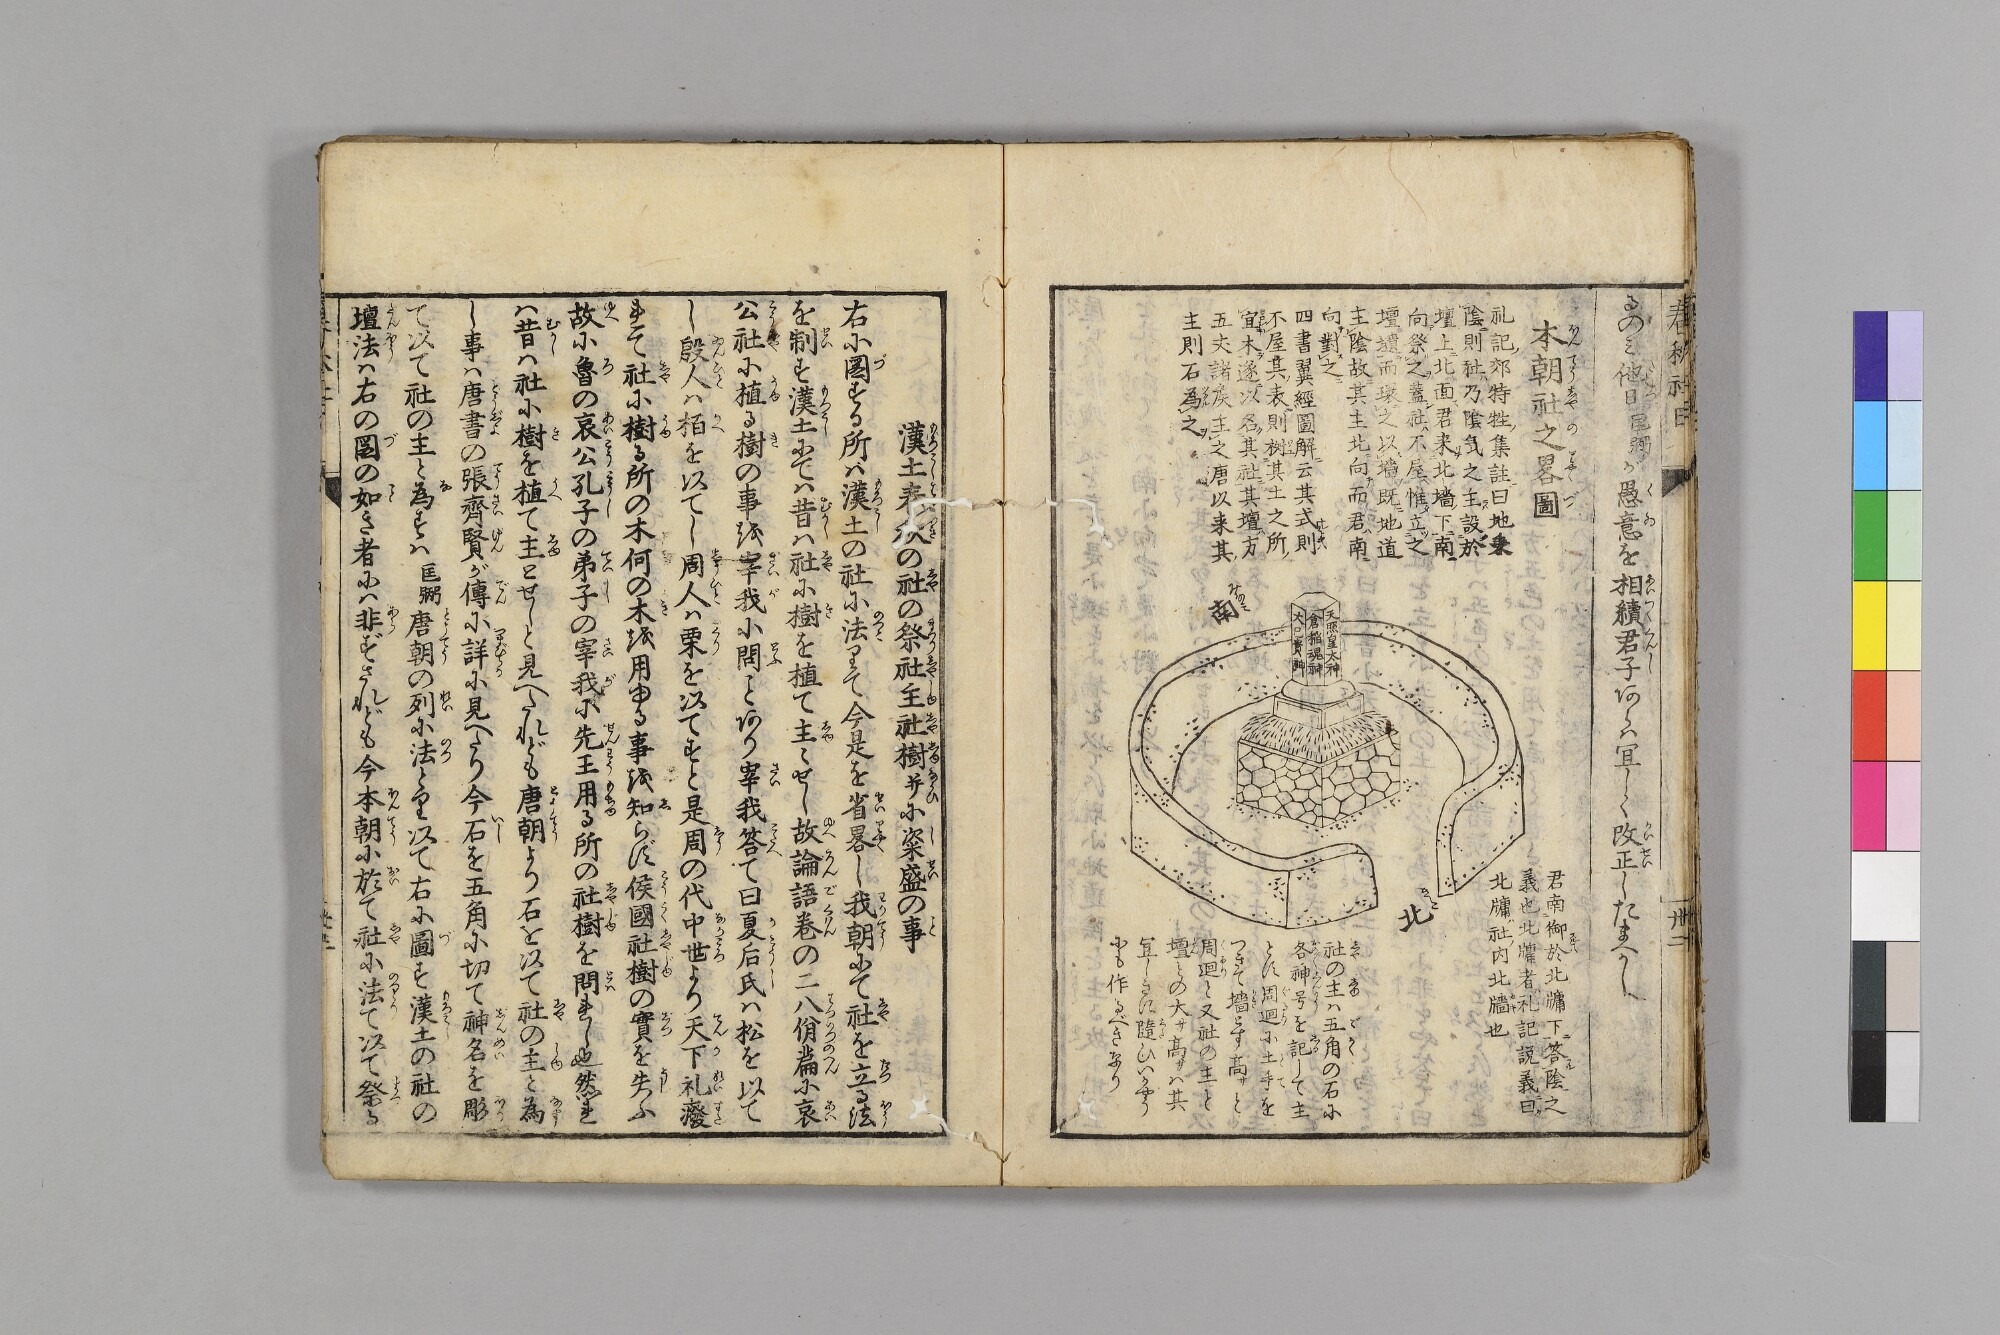 るのミ他日匡弼が愚意を相續君子あらば宜しく改正したまへかし
本朝社之畧圖
礼記郊特牲集註曰地秉
陰則社乃陰気之主設於
壇上北面君来北墻下南
向祭之蓋社不屋惟立之
壇壝而環之以墻既地道
主陰故其主北向而君南
向對之
四書翼經圖解云其式則
不屋其表則樹其土之所
宜木遂以名其社其壇方
五丈諸侯主之唐以来其
主則石為之
南
天照皇太神
倉稲魂神
大己貴神
北
君南御於北牗下答陰之
義也北牗者礼記説義曰
北牗社内北牆也
社の主ハ五角の石に
各神号を記して主
とす周廻に土手を
つきて墻とす高サと
周廻と又社の主と
壇との大サ高サハ其
宜しきに隨ひいかやう
にも作るべきなり
春秋社日
卅二
漢土春秋の社の祭社主社樹并に粢盛の事
右に圖する所ハ漢土の社に法りて今是を省畧し我朝にて社を立る法
を制す漢土にてハ昔ハ社に樹を植て主とせし故論語巻の二八佾篇に哀
公社に植る樹の事を宰我に問ことあり宰我答て曰夏后氏ハ松を以て
し殷人ハ栢を以てし周人ハ栗を以てすと是周の代中世より天下礼癈
れて社に樹る所の木何の木を用ゆる事を知らず侯國社樹の實を失ふ
故に魯の哀公孔子の弟子の宰我に先王用る所の社樹を問れし也然れ
ハ昔ハ社に樹を植て主とせしと見へたれども唐朝より石を以て社の主と為
し事ハ唐書の張齊賢が傳に詳に見へたり今石を五角に切て神名を彫
て以て社の主と為すハ匡弼唐朝の列に法とり以て右に圖す漢土の社の
壇法ハ右の圖の如き者にハ非ずされども今本朝に於て社に法て以て祭る